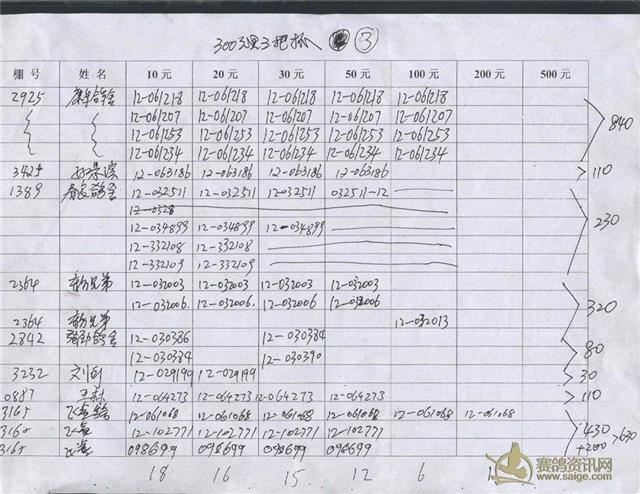 300 ③
棚号 姓名 10元 20元 30元 50元 100元 200元 500元
2925 12-061218 12-061218 12-061218 12-061218 12-061218
12-061207 12-061207 12-061207 12-061207 12-061207
12-061253 12-061253 12-061253 12-061253 12-061253
12-061234 12-061234 12-061234 12-061234 12-061234
840
3425 12-063186 12-063186 12-063186 12-063186 110
1389 12-032511 12-032511 12-032511 032511-12
12-0328
12-034899 12-034899 12-034899
230
12-332108 12-332108
12-332109 12-332109
2364 兄弟 12-032003 12-032003 12-032003 12-032003
12-032006 12-032006 12-032006 12-032006
320
2364 兄弟 12-032013
2842 12-030386 12-030384
12-030384 12-030390
80
3232 12-029199 12-029199 30
0887 王林 12-064273 12-064273 12-064273 12-064273 110
3165 12-061068 12-061068 12-061068 12-061068 12-061068 12-061068
3165 12-102771 12-102771 12-102771 12-102771
430
3165 098699 098699 098699 098699
+200
18 16 15 12 6 1
赛鸽资讯网
www.saige.com